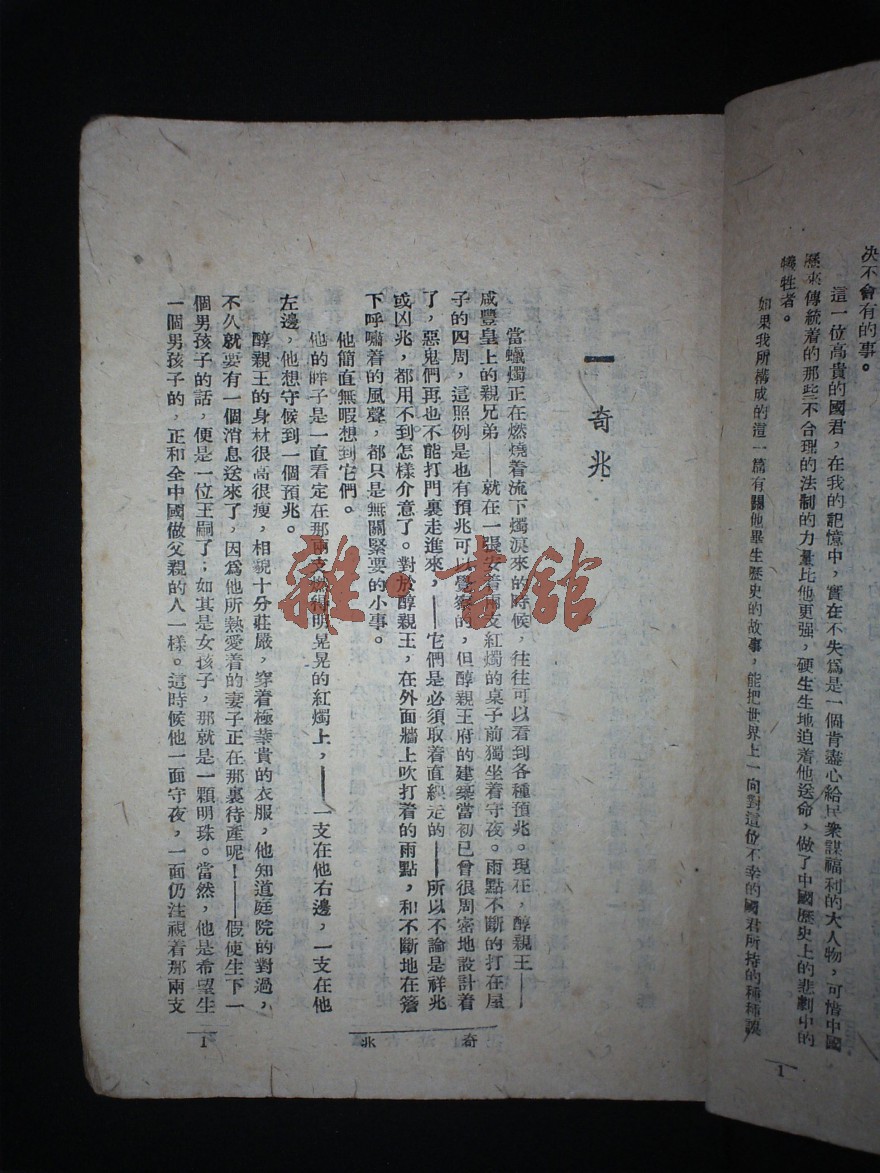 决不會有的事。
這一位高貴的國君，在我的記憶中，實在不失爲是一個肯盡心給民衆謀福利的大人物，可惜中國
歷來傳統着的那些不合理的法制的力量比他更强，硬生生地迫着他送命，做了中國歷史上的悲劇中的
犧牲者。
如果我所構成的這一篇有關他畢生歷史的故事，能把世界上一向對這位不幸的國君所持的種種誤
1
一 奇兆
當蠟燭正在燃燒着流下燭淚來的時候，往往可以看到各種預兆。現在，醇親王——
咸豐皇上的親兄弟——就在一張安着兩支紅燭的桌子前獨坐着守夜。雨點不斷的打在屋
子的四周，這照例是也有預兆可以覺察的，但醇親王府的建築當初已曾很周密地設計着
了，惡鬼們再也不能打門裏走進來，——它們是必須取着直線走的——所以不論是祥兆
或凶兆，都用不到怎樣介意了。對於醇親王，在外面牆上吹打着的雨點，和不斷地在簷
下呼嘯着的風聲，都只是無關緊要的小事。
他簡直無暇想到它們。
他的眸子是一直看定在那兩支燃得明晃晃的紅燭上，——一支在他右邊，一支在他
左邊，他想守候到一個預兆。
醇親王的身材很高很瘦，相貌十分莊嚴，穿着極華貴的衣服，他知道庭院的對過，
不久就要有一個消息送來了，因爲他所熱愛着的妻子正在那裏待產呢！——假使生下一
個男孩子的話，便是一位王嗣了；如其是女孩子，那就是一顆明珠。當然，他是希望生
一個男孩子的，正和全中國做父親的人一樣。這時候他一面守夜，一面仍注視着那兩支
奇 兆
1
雜·書館